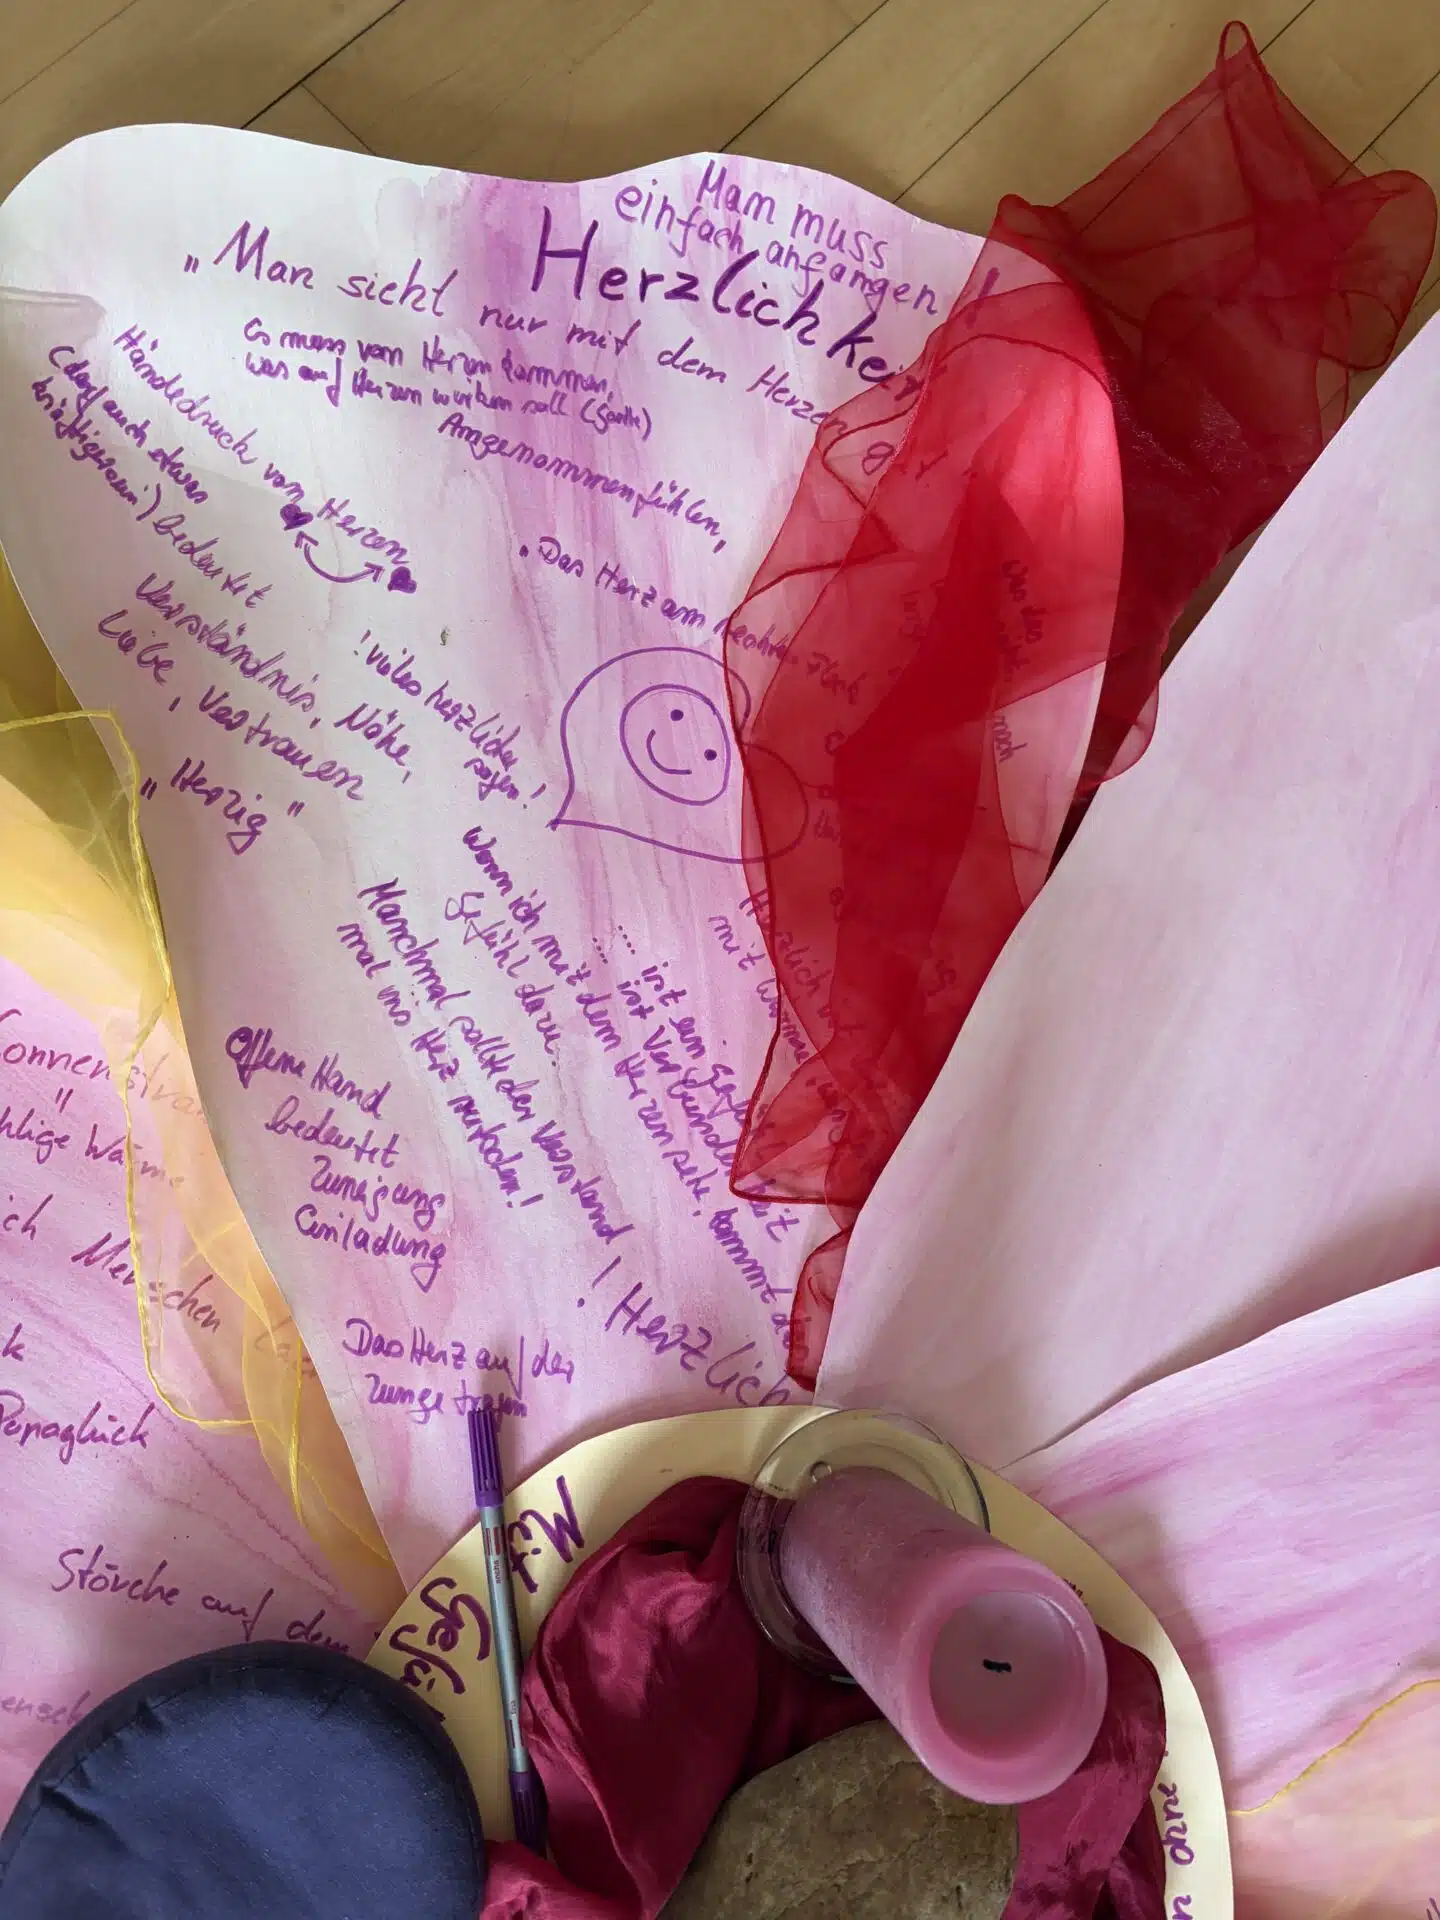 Man muss
einfach anfangen !
Herzlichkeit
„Man sieht nur mit dem Herzen gut
Es muss vom Herzen kommen,
was auf Herzen wirken soll (Goethe)
Angenommenfühlen,
Händedruck vom Herzen
(darf auch etwas
kräftiger sein) bedeutet
Verständnis, Nähe,
Liebe, Vertrauen
"Herzig"
„Das Herz am rechten Fleck
! vieles herzlicher
sagen!
Wenn ich mit dem Herzen sehe, kommt das
Gefühl dazu.
Manchmal sollte der Verstand
mal ins Herz rutschen!
..... ist ein
.... ist Verbundenheit
Herzlich
mit Wärme
was das
nach
Offene Hand
bedeutet
Zuneigung
Einladung
! Herzlich
Das Herz auf der
Zunge tragen
Sonnenstra
"
hlige Wärme
ich Menschen
k
Papaglück
Störche auf dem
ensch
Mit
Gefü
ohne